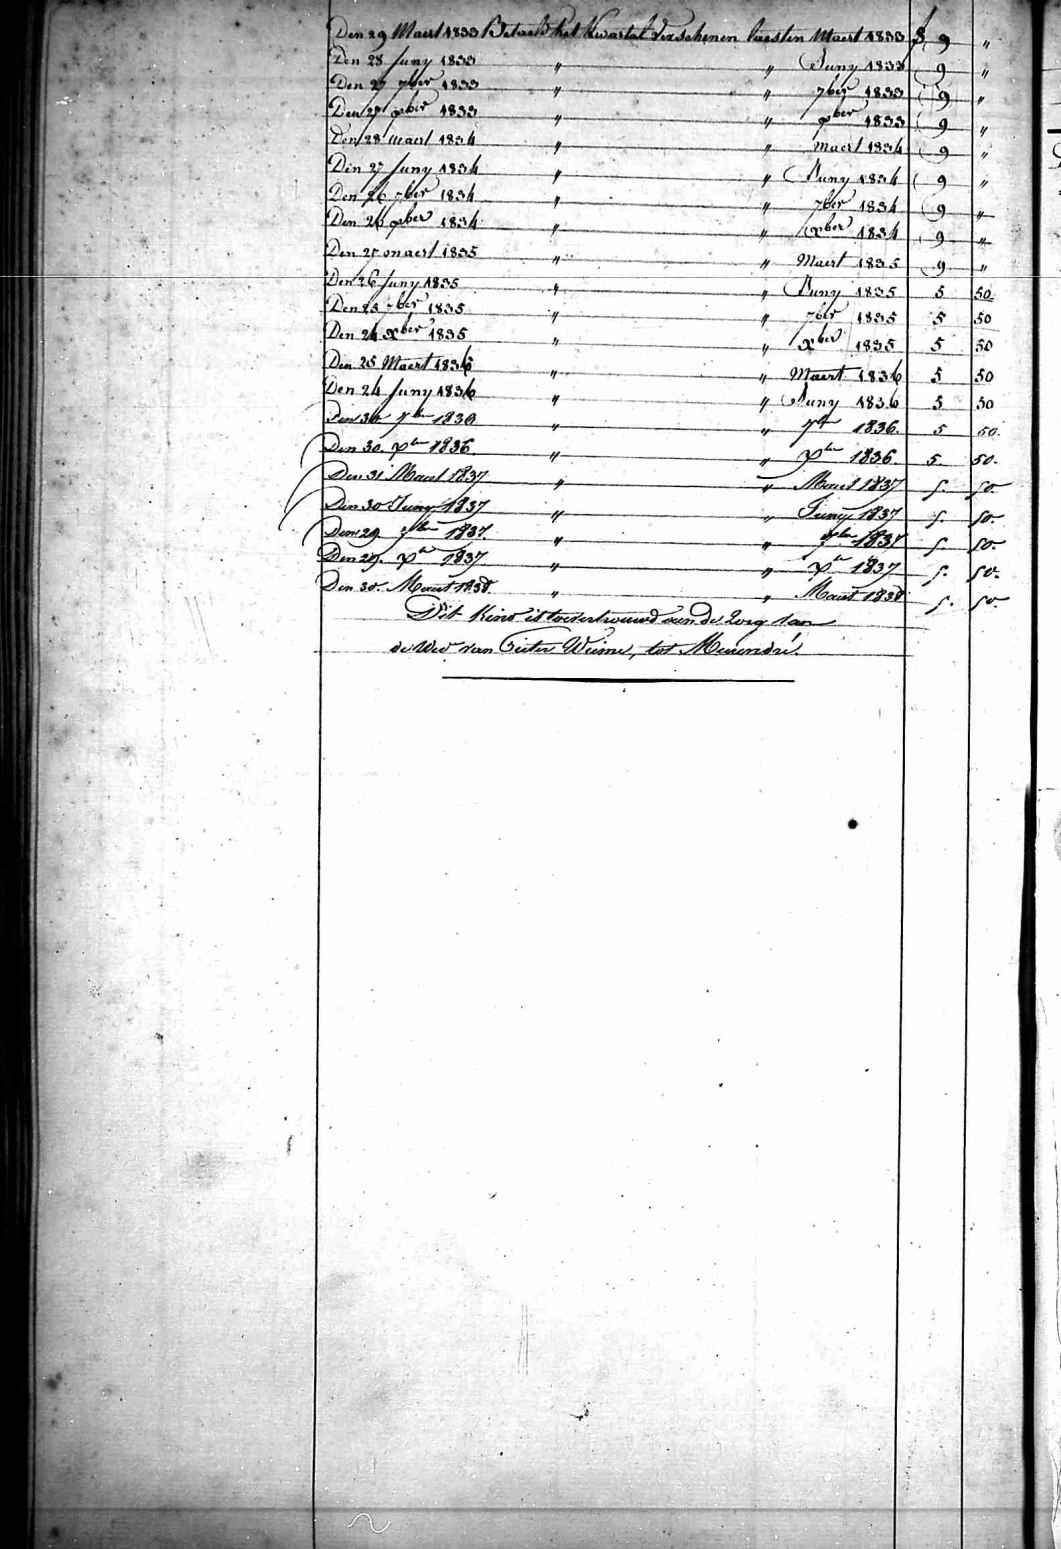 Den 29 Maert 1833 Betaelt het Kwartal verschenen laesten Maert 1833 f 9 "
Den 28 Juny 1833 " " Juny 1833 9 "
Den 27 7ber 1833 " " 7ber 1833 9 "
Den 27 xber 1833 " " xber 1833 9 "
Den 28 maert 1834 " " Maert 1834 9 "
Den 27 Juny 1834 " " Juny 1834 9 "
Den 26 7ber 1834 " " 7ber 1834 9 "
Den 26 xber 1834 " " xber 1834 9 "
Den 27 maert 1835 " " Maert 1835 9 "
Den 26 Juny 1835 " " Juny 1835 5 50
Den 25 7ber 1835 " " 7ber 1835 5 50
Den 24 xber 1835 " " xber 1835 5 50
Den 25 Maert 1836 " " Maert 1836 5 50
Den 24 Juny 1836 " " Juny 1836 5 50
Den 30 7ber 1836 " " 7ber 1836. 5 50.
Den 30. xber 1836 " " xber 1836. 5. 50.
Den 31 Maert 1837 " " Maert 1837 5. 50.
Den 30 Juny 1837 " " Juny 1837 5. 50.
Den 29 7ber 1837. " " 7ber 1837 5. 50.
Den 29. xber 1837 " " xber 1837 5. 50.
Den 30. Maert 1838. " " Maert 1838 5. 50.
Dit Kind is toevertrouwd aen de Zorg van
de Wed van Pieter Weime, tot Merendré.